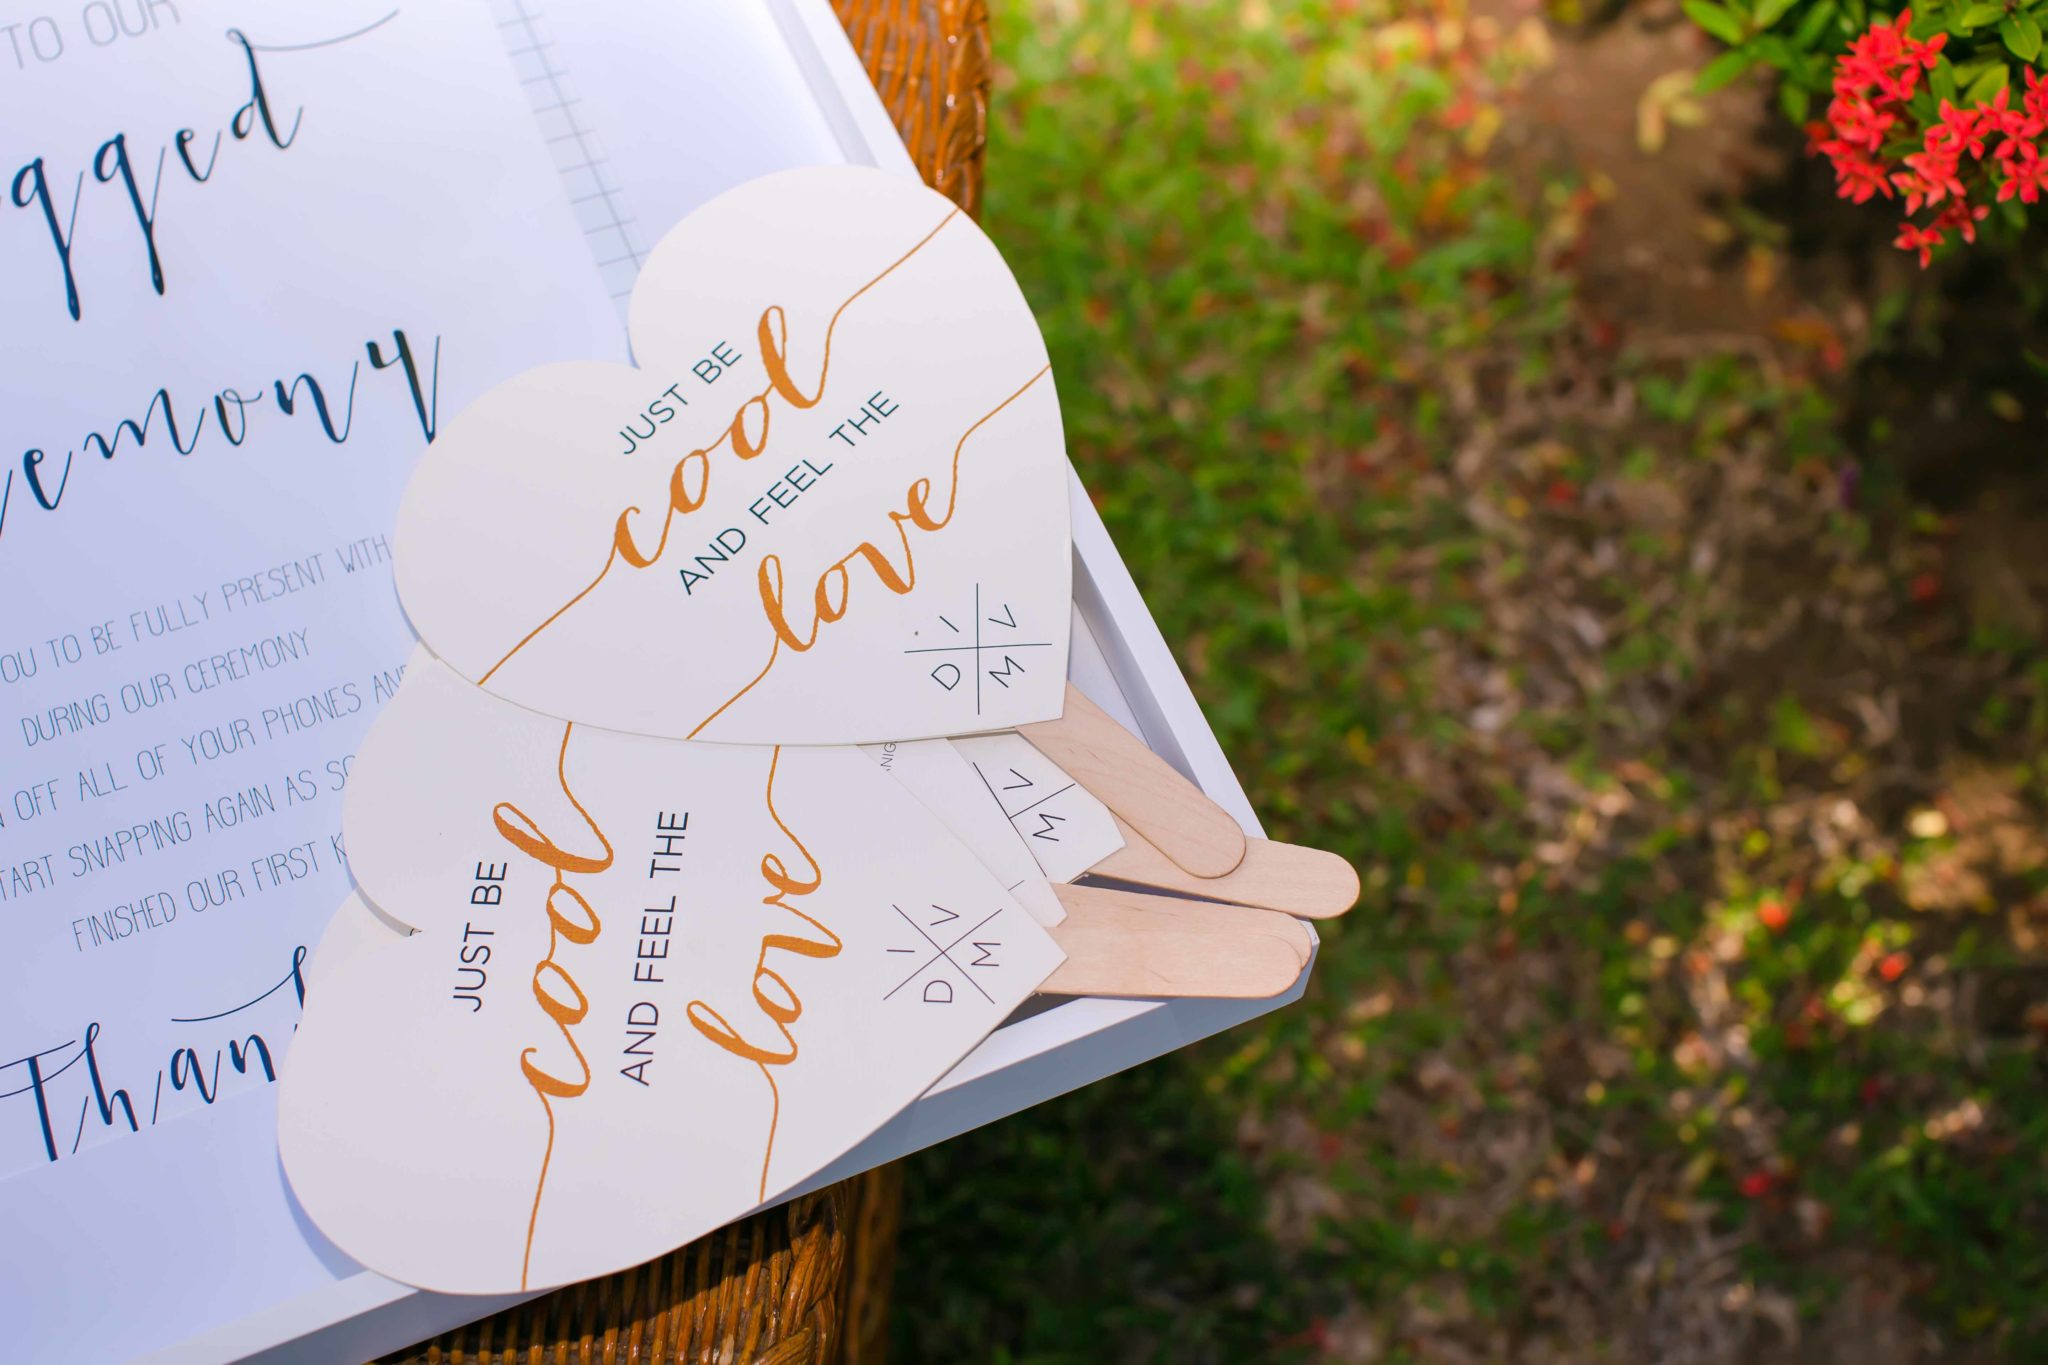 TO OUR
OU TO BE FULLY PRESENT WITH
DURING OUR CEREMONY
OFF ALL OF YOUR PHONES AND
START SNAPPING AGAIN AS
FINISHED OUR FIRST
JUST BE
cool
AND FEEL THE
love
I V
D M
JUST BE
cool
AND FEEL THE
love
I V
D M
V
M